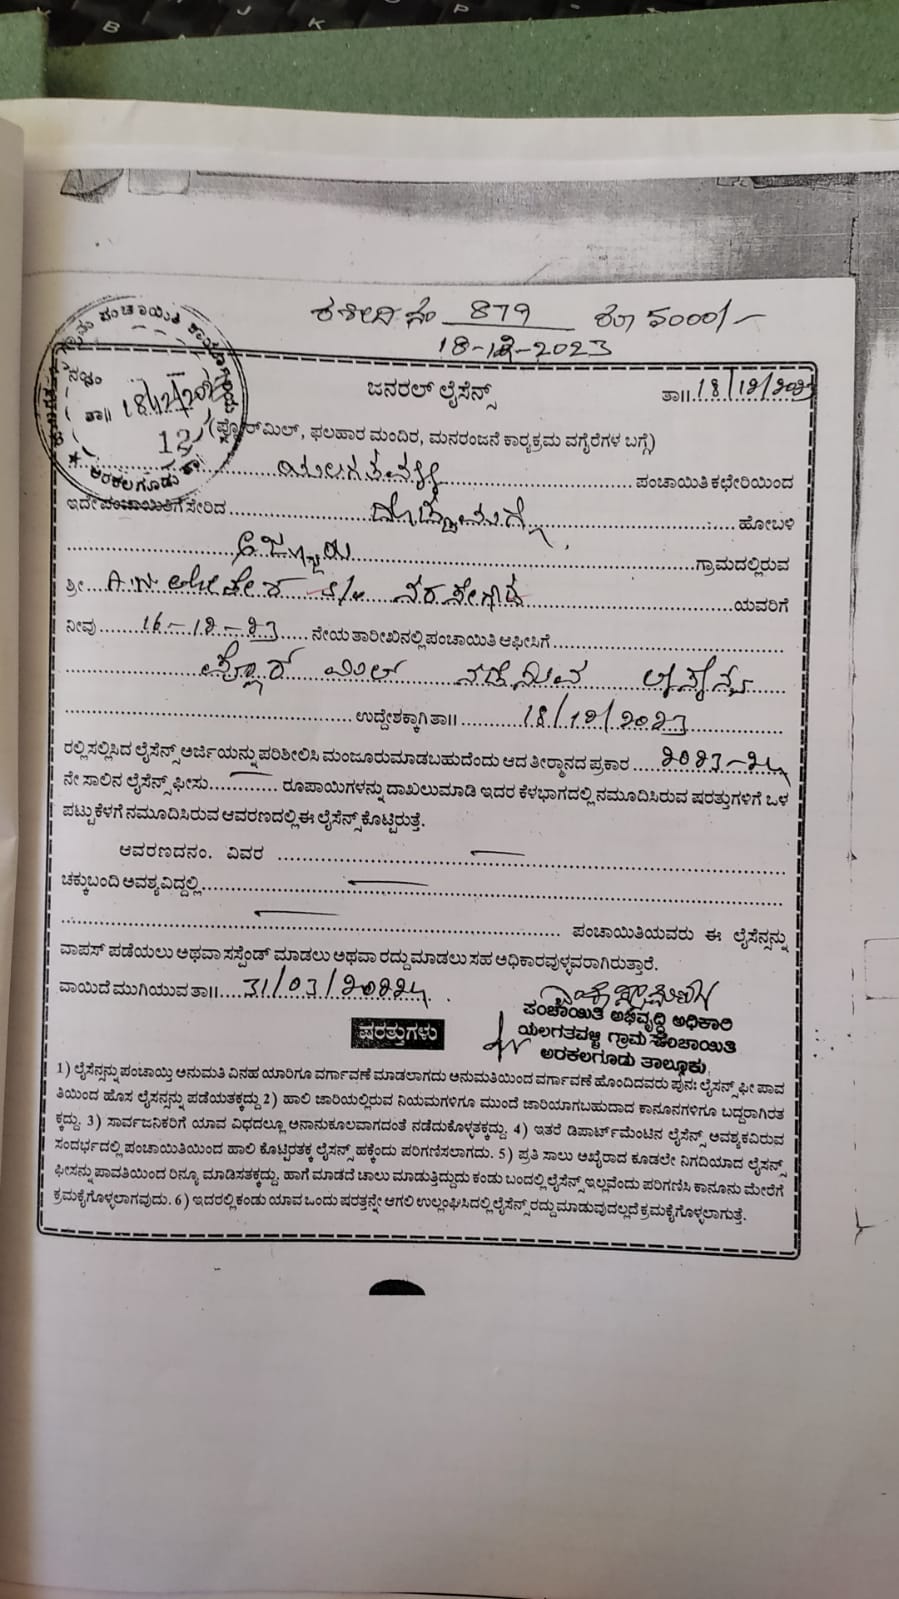 ರಶೀದಿ ನಂ 879 ರೂ 5000/-
18-12-2023
ನಂಬ್ರಂ
ತಾ॥ 18/12/2023
12
ಅರಕಲಗೂಡು ತಾ
ಜನರಲ್ ಲೈಸೆನ್ಸ್ ತಾ॥ 18/12/2023
(ಫ್ಲೋರ್‌ಮಿಲ್, ಫಲಹಾರ ಮಂದಿರ, ಮನರಂಜನೆ ಕಾರ್‍ಯಕ್ರಮ ವಗೈರೆಗಳ ಬಗ್ಗೆ)
ಯಲಗತವಳ್ಳಿ ಪಂಚಾಯಿತಿ ಕಛೇರಿಯಿಂದ
ಇದೇ ಪಂಚಾಯಿತಿಗೆ ಸೇರಿದ ದೊಡ್ಡಮಗ್ಗೆ ಹೋಬಳಿ
ಗ್ರಾಮದಲ್ಲಿರುವ
ಶ್ರೀ A.N S/o ಯವರಿಗೆ
ನೀವು 16-12-23 ನೇಯ ತಾರೀಖಿನಲ್ಲಿ ಪಂಚಾಯಿತಿ ಆಫೀಸಿಗೆ
ಫ್ಲೋರ್ ಮಿಲ್ ನಡೆಸುವ ಲೈಸೆನ್ಸ್
ಉದ್ದೇಶಕ್ಕಾಗಿ ತಾ॥ 18/12/2023
ರಲ್ಲಿ ಸಲ್ಲಿಸಿದ ಲೈಸೆನ್ಸ್ ಅರ್ಜಿಯನ್ನು ಪರಿಶೀಲಿಸಿ ಮಂಜೂರುಮಾಡಬಹುದೆಂದು ಆದ ತೀರ್‍ಮಾನದ ಪ್ರಕಾರ 2023-24
ನೇ ಸಾಲಿನ ಲೈಸೆನ್ಸ್ ಫೀಸು ರೂಪಾಯಿಗಳನ್ನು ದಾಖಲುಮಾಡಿ ಇದರ ಕೆಳಭಾಗದಲ್ಲಿ ನಮೂದಿಸಿರುವ ಷರತ್ತುಗಳಿಗೆ ಒಳ
ಪಟ್ಟು ಕೆಳಗೆ ನಮೂದಿಸಿರುವ ಆವರಣದಲ್ಲಿ ಈ ಲೈಸೆನ್ಸ್ ಕೊಟ್ಟಿರುತ್ತೆ.
ಆವರಣದ ನಂ. ವಿವರ
ಚಕ್ಕುಬಂದಿ ಅವಶ್ಯವಿದ್ದಲ್ಲಿ
ಪಂಚಾಯಿತಿಯವರು ಈ ಲೈಸೆನ್ಸನ್ನು
ವಾಪಸ್ ಪಡೆಯಲು ಅಥವಾ ಸಸ್ಪೆಂಡ್ ಮಾಡಲು ಅಥವಾ ರದ್ದು ಮಾಡಲು ಸಹ ಅಧಿಕಾರವುಳ್ಳವರಾಗಿರುತ್ತಾರೆ.
ವಾಯಿದೆ ಮುಗಿಯುವ ತಾ॥ 31/03/2024
ಪಂಚಾಯಿತಿ ಅಭಿವೃದ್ಧಿ ಅಧಿಕಾರಿ
ಯಲಗತವಳ್ಳಿ ಗ್ರಾಮ ಪಂಚಾಯಿತಿ
ಅರಕಲಗೂಡು ತಾಲ್ಲೂಕು.
ಷರತ್ತುಗಳು
1) ಲೈಸೆನ್ಸನ್ನು ಪಂಚಾಯ್ತಿ ಅನುಮತಿ ವಿನಹ ಯಾರಿಗೂ ವರ್ಗಾವಣೆ ಮಾಡಲಾಗದು ಅನುಮತಿಯಿಂದ ವರ್ಗಾವಣೆ ಹೊಂದಿದವರು ಪುನಃ ಲೈಸೆನ್ಸ್ ಫೀ ಪಾವ
ತಿಯಿಂದ ಹೊಸ ಲೈಸನ್ಸನ್ನು ಪಡೆಯತಕ್ಕದ್ದು 2) ಹಾಲಿ ಜಾರಿಯಲ್ಲಿರುವ ನಿಯಮಗಳಿಗೂ ಮುಂದೆ ಜಾರಿಯಾಗಬಹುದಾದ ಕಾನೂನಗಳಿಗೂ ಬದ್ದರಾಗಿರತ
ಕ್ಕದ್ದು. 3) ಸಾರ್ವಜನಿಕರಿಗೆ ಯಾವ ವಿಧದಲ್ಲೂ ಅನಾನುಕೂಲವಾಗದಂತೆ ನಡೆದುಕೊಳ್ಳತಕ್ಕದ್ದು. 4) ಇತರೆ ಡಿಪಾರ್ಟ್‌ಮೆಂಟಿನ ಲೈಸೆನ್ಸ್ ಅವಶ್ಯಕವಿರುವ
ಸಂದರ್ಭದಲ್ಲಿ ಪಂಚಾಯಿತಿಯಿಂದ ಹಾಲಿ ಕೊಟ್ಟಿರತಕ್ಕ ಲೈಸೆನ್ಸ್ ಹಕ್ಕೆಂದು ಪರಿಗಣಿಸಲಾಗದು. 5) ಪ್ರತಿ ಸಾಲು ಅಖೈರಾದ ಕೂಡಲೇ ನಿಗದಿಯಾದ ಲೈಸನ್ಸ್
ಫೀಸನ್ನು ಪಾವತಿಯಿಂದ ರಿನ್ಯೂ ಮಾಡಿಸತಕ್ಕದ್ದು. ಹಾಗೆ ಮಾಡದೆ ಚಾಲು ಮಾಡುತ್ತಿದ್ದುದು ಕಂಡು ಬಂದಲ್ಲಿ ಲೈಸೆನ್ಸ್ ಇಲ್ಲವೆಂದು ಪರಿಗಣಿಸಿ ಕಾನೂನು ಮೇರೆಗೆ
ಕ್ರಮಕೈಗೊಳ್ಳಲಾಗವುದು. 6) ಇದರಲ್ಲಿ ಕಂಡು ಯಾವ ಒಂದು ಷರತ್ತನ್ನೇ ಆಗಲಿ ಉಲ್ಲಂಘಿಸಿದಲ್ಲಿ ಲೈಸೆನ್ಸ್ ರದ್ದು ಮಾಡುವುದಲ್ಲದೆ ಕ್ರಮಕೈಗೊಳ್ಳಲಾಗುತ್ತೆ.